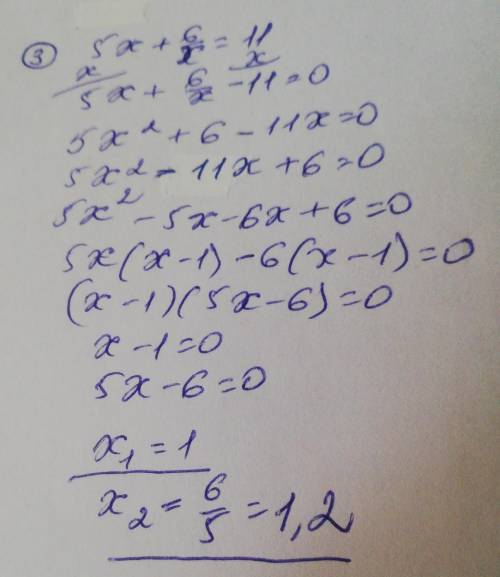 ③ 5x + 6/x = 11
x/5x + 6/x - x/11 = 0
5x² + 6 - 11x = 0
5x² - 11x + 6 = 0
5x² - 5x - 6x + 6 = 0
5x(x - 1) - 6(x - 1) = 0
(x - 1)(5x - 6) = 0
x - 1 = 0
5x - 6 = 0
x₁ = 1
x₂ = 6/5 = 1,2